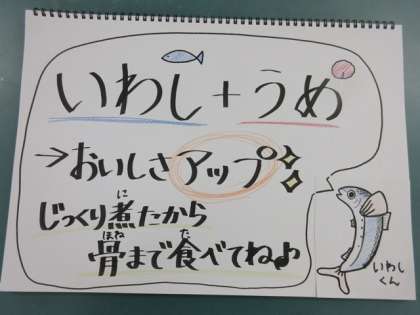 いわし+うめ
→おいしさアップ
じっくり煮たから
に
骨まで食べてね♪
ほね た
いわし
くん